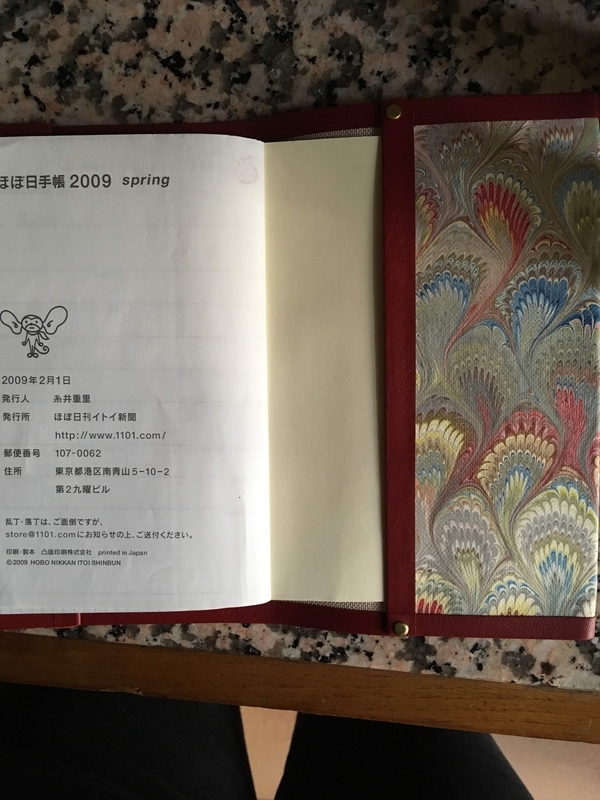 ほぼ日手帳 2009 spring
2009年2月1日
発行人 糸井重里
発行所 ほぼ日刊イトイ新聞
http://www.1101.com/
郵便番号 107-0062
住所 東京都港区南青山5-10-2
第2九曜ビル
乱丁・落丁は、ご面倒ですが、
store@1101.comにお知らせの上、ご送付ください。
印刷・製本 凸版印刷株式会社 printed in Japan
©2009 HOBO NIKKAN ITOI SHINBUN